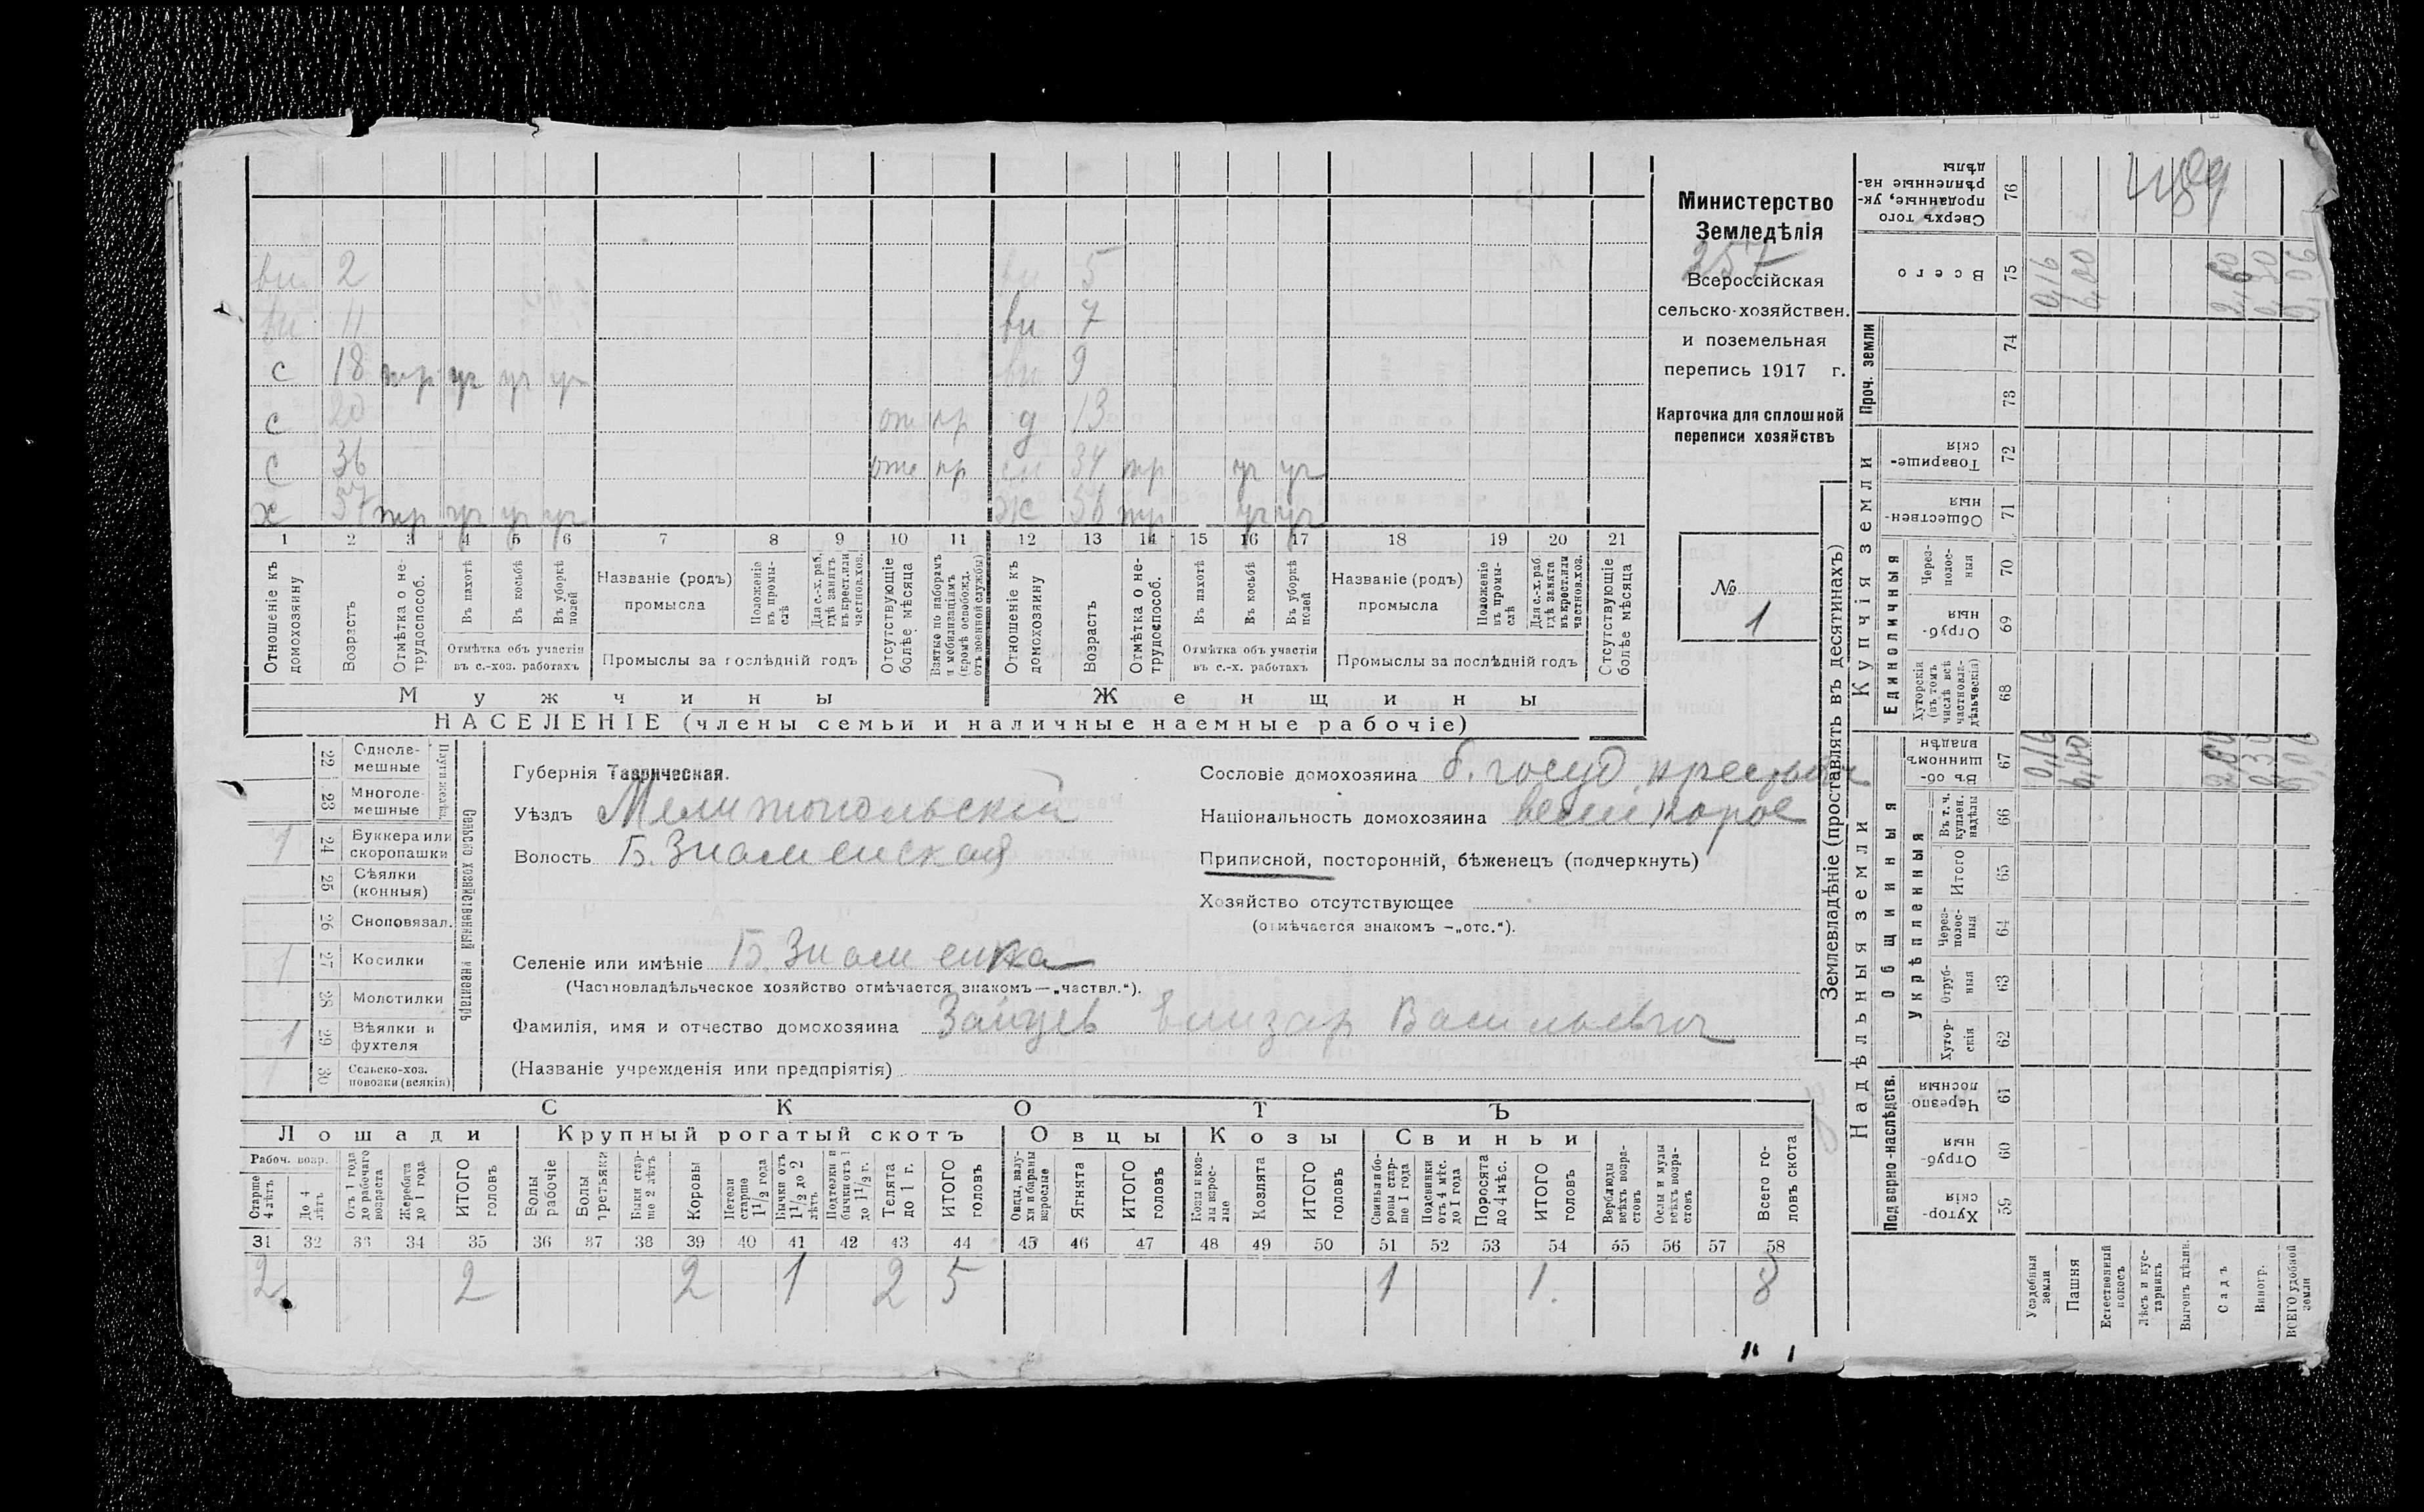 ви 2 ви 5
ви 11 ви 7
с 18 тр уч уч уч ви 9
с 20 от пр д 13
с 36 отс пр сн 34 тр уч уч
х 57 тр уч уч уч Ж 56 тр уч уч
1 2 3 4 5 6 7 8 9 10 11 12 13 14 15 16 17 18 19 20 21
Отношеніе къ домохозяину
Возрастъ
Отмѣтка о не-трудоспособ.
Въ пахотѣ
Въ косьбѣ
Въ уборкѣ полей
Отмѣтка объ участіи въ с.-хоз. работахъ
Названіе (родъ) промысла
Положеніе въ промы-слѣ
Для с.-х. раб. гдѣ занятъ въ крест. или частнов. хоз.
Промыслы за послѣдній годъ
Отсутствующіе болѣе мѣсяца
Взятые по наборамъ и мобилизаціямъ (кромѣ освобожд. отъ военной службы)
Отношеніе къ домохозяину
Возрастъ
Отмѣтка о не-трудоспособ.
Въ пахотѣ
Въ косьбѣ
Въ уборкѣ полей
Отмѣтка объ участіи въ с.-х. работахъ
Названіе (родъ) промысла
Положеніе въ промы-слѣ
Для с.-х. раб. гдѣ занята въ крест. или частнов. хоз.
Промыслы за послѣдній годъ
Отсутствующіе болѣе мѣсяца
Мужчины Женщины
НАСЕЛЕНІЕ (члены семьи и наличные наемные рабочіе)
Министерство
Земледѣлія
257
Всероссійская
сельско-хозяйствен.
и поземельная
перепись 1917 г.
Карточка для сплошной
переписи хозяйствъ
№
1
Сельско хозяйственный инвентарь
22 Однолемешные
23 Многолемешные
1 24 Буккера или скоропашки
25 Сѣялки (конныя)
26 Сноповязал.
1 27 Косилки
28 Молотилки
1 29 Вѣялки и фухтеля
1 30 Сельско-хоз. повозки (всякія)
Губернія Таврическая.
Уѣздъ Мелитопольскій
Волость Б. Знаменская
Сословіе домохозяина б. госуд крестьян
Національность домохозяина великорос
Приписной, посторонній, бѣженецъ (подчеркнуть)
Хозяйство отсутствующее
(отмѣчается знакомъ —„отс.“).
Селеніе или имѣніе Б. Знаменка
(Частновладѣльческое хозяйство отмѣчается знакомъ—„частвл.“).
Фамилія, имя и отчество домохозяина Зайцев Елизар Васильевич
(Названіе учрежденія или предпріятія)
СКОТЪ
Лошади Крупный рогатый скотъ Овцы Козы Свиньи
Рабоч. возр.
Старше 4 лѣтъ
До 4 лѣтъ
Отъ 1 года до рабочаго возраста
Жеребята до 1 года
ИТОГО головъ
Волы рабочіе
Волы третьяки
Быки старше 2 лѣтъ
Коровы
Нетели старше 1 1/2 года
Бычки отъ 1 1/2 до 2 лѣтъ
Подтелки и бычки отъ 1 до 1 1/2 г.
Телята до 1 г.
ИТОГО головъ
Овцы, валухи и бараны взрослые
Ягнята
ИТОГО головъ
Козы и козлы взрослые
Козлята
ИТОГО головъ
Свиньи и боровы старше 1 года
Подсвинки отъ 4 мѣс. до 1 года
Поросята до 4 мѣс.
ИТОГО головъ
Верблюды всѣхъ возрастовъ
Ослы и мулы всѣхъ возрастовъ
Всего головъ скота
31 32 33 34 35 36 37 38 39 40 41 42 43 44 45 46 47 48 49 50 51 52 53 54 55 56 57 58
2 2 2 1 2 5 1 1. 8
Землевладѣніе (проставлять въ десятинахъ)
Надѣльныя земли Купчія земли Проч. земли
Подворно-наслѣдств. Общинныя Единоличныя
Укрѣпленныя
Хуторскія 59
Отрубныя 60
Черезполосныя 61
Хуторскія 62
Отрубныя 63
Черезполосныя 64
Итого 65
Въ т. ч. куплен. надѣлы 66
Въ общинномъ владѣн 67
Хуторскія (въ томъ числѣ всѣ частновладѣльческія) 68
Отрубныя 69
Черезполосныя 70
Общественныя 71
Товарищескія 72
73
74
Всего 75
Сверхъ того проданные, укрѣпленные надѣлы 76
Усадебныя земли 0,16 0,16
Пашня 6,00 6,00
Естественный покосъ
Лѣсъ и кустарникъ
Выгонъ дѣлян.
Садъ
Виногр. 0,30 0,30
ВСЕГО удобной земли